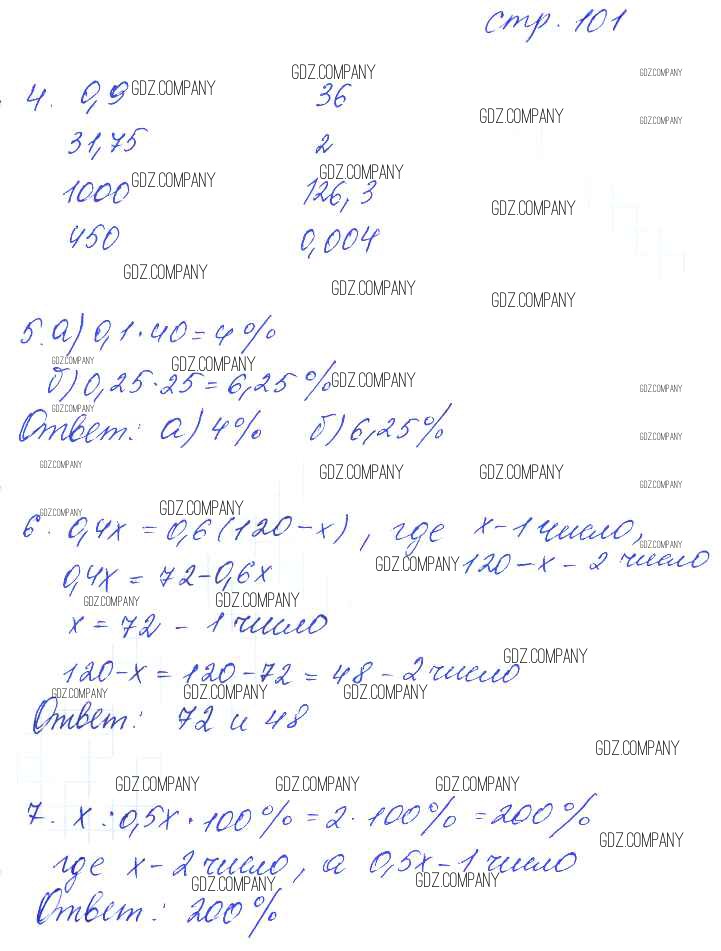 стр. 101
GDZ.COMPANY GDZ.COMPANY
4. 0,9 GDZ.COMPANY 36
GDZ.COMPANY GDZ.COMPANY
31,75 2
GDZ.COMPANY
1000 GDZ.COMPANY 126,3
GDZ.COMPANY
450 0,004
GDZ.COMPANY
GDZ.COMPANY GDZ.COMPANY
5. а) 0,1 · 40 = 4%
GDZ.COMPANY GDZ.COMPANY
б) 0,25 · 25 = 6,25% GDZ.COMPANY GDZ.COMPANY
GDZ.COMPANY
Ответ: а) 4% б) 6,25% GDZ.COMPANY
GDZ.COMPANY GDZ.COMPANY GDZ.COMPANY GDZ.COMPANY
GDZ.COMPANY GDZ.COMPANY
6. 0,4x = 0,6(120 - x), где x - 1 число,
GDZ.COMPANY
GDZ.COMPANY 120 - x - 2 число
0,4x = 72 - 0,6x
GDZ.COMPANY GDZ.COMPANY
x = 72 - 1 число
GDZ.COMPANY
120 - x = 120 - 72 = 48 - 2 число
GDZ.COMPANY GDZ.COMPANY GDZ.COMPANY
Ответ: 72 и 48
GDZ.COMPANY
GDZ.COMPANY GDZ.COMPANY GDZ.COMPANY
7. x : 0,5x · 100% = 2 · 100% = 200%
GDZ.COMPANY
где x - 2 число, а 0,5x - 1 число
GDZ.COMPANY GDZ.COMPANY
Ответ: 200%